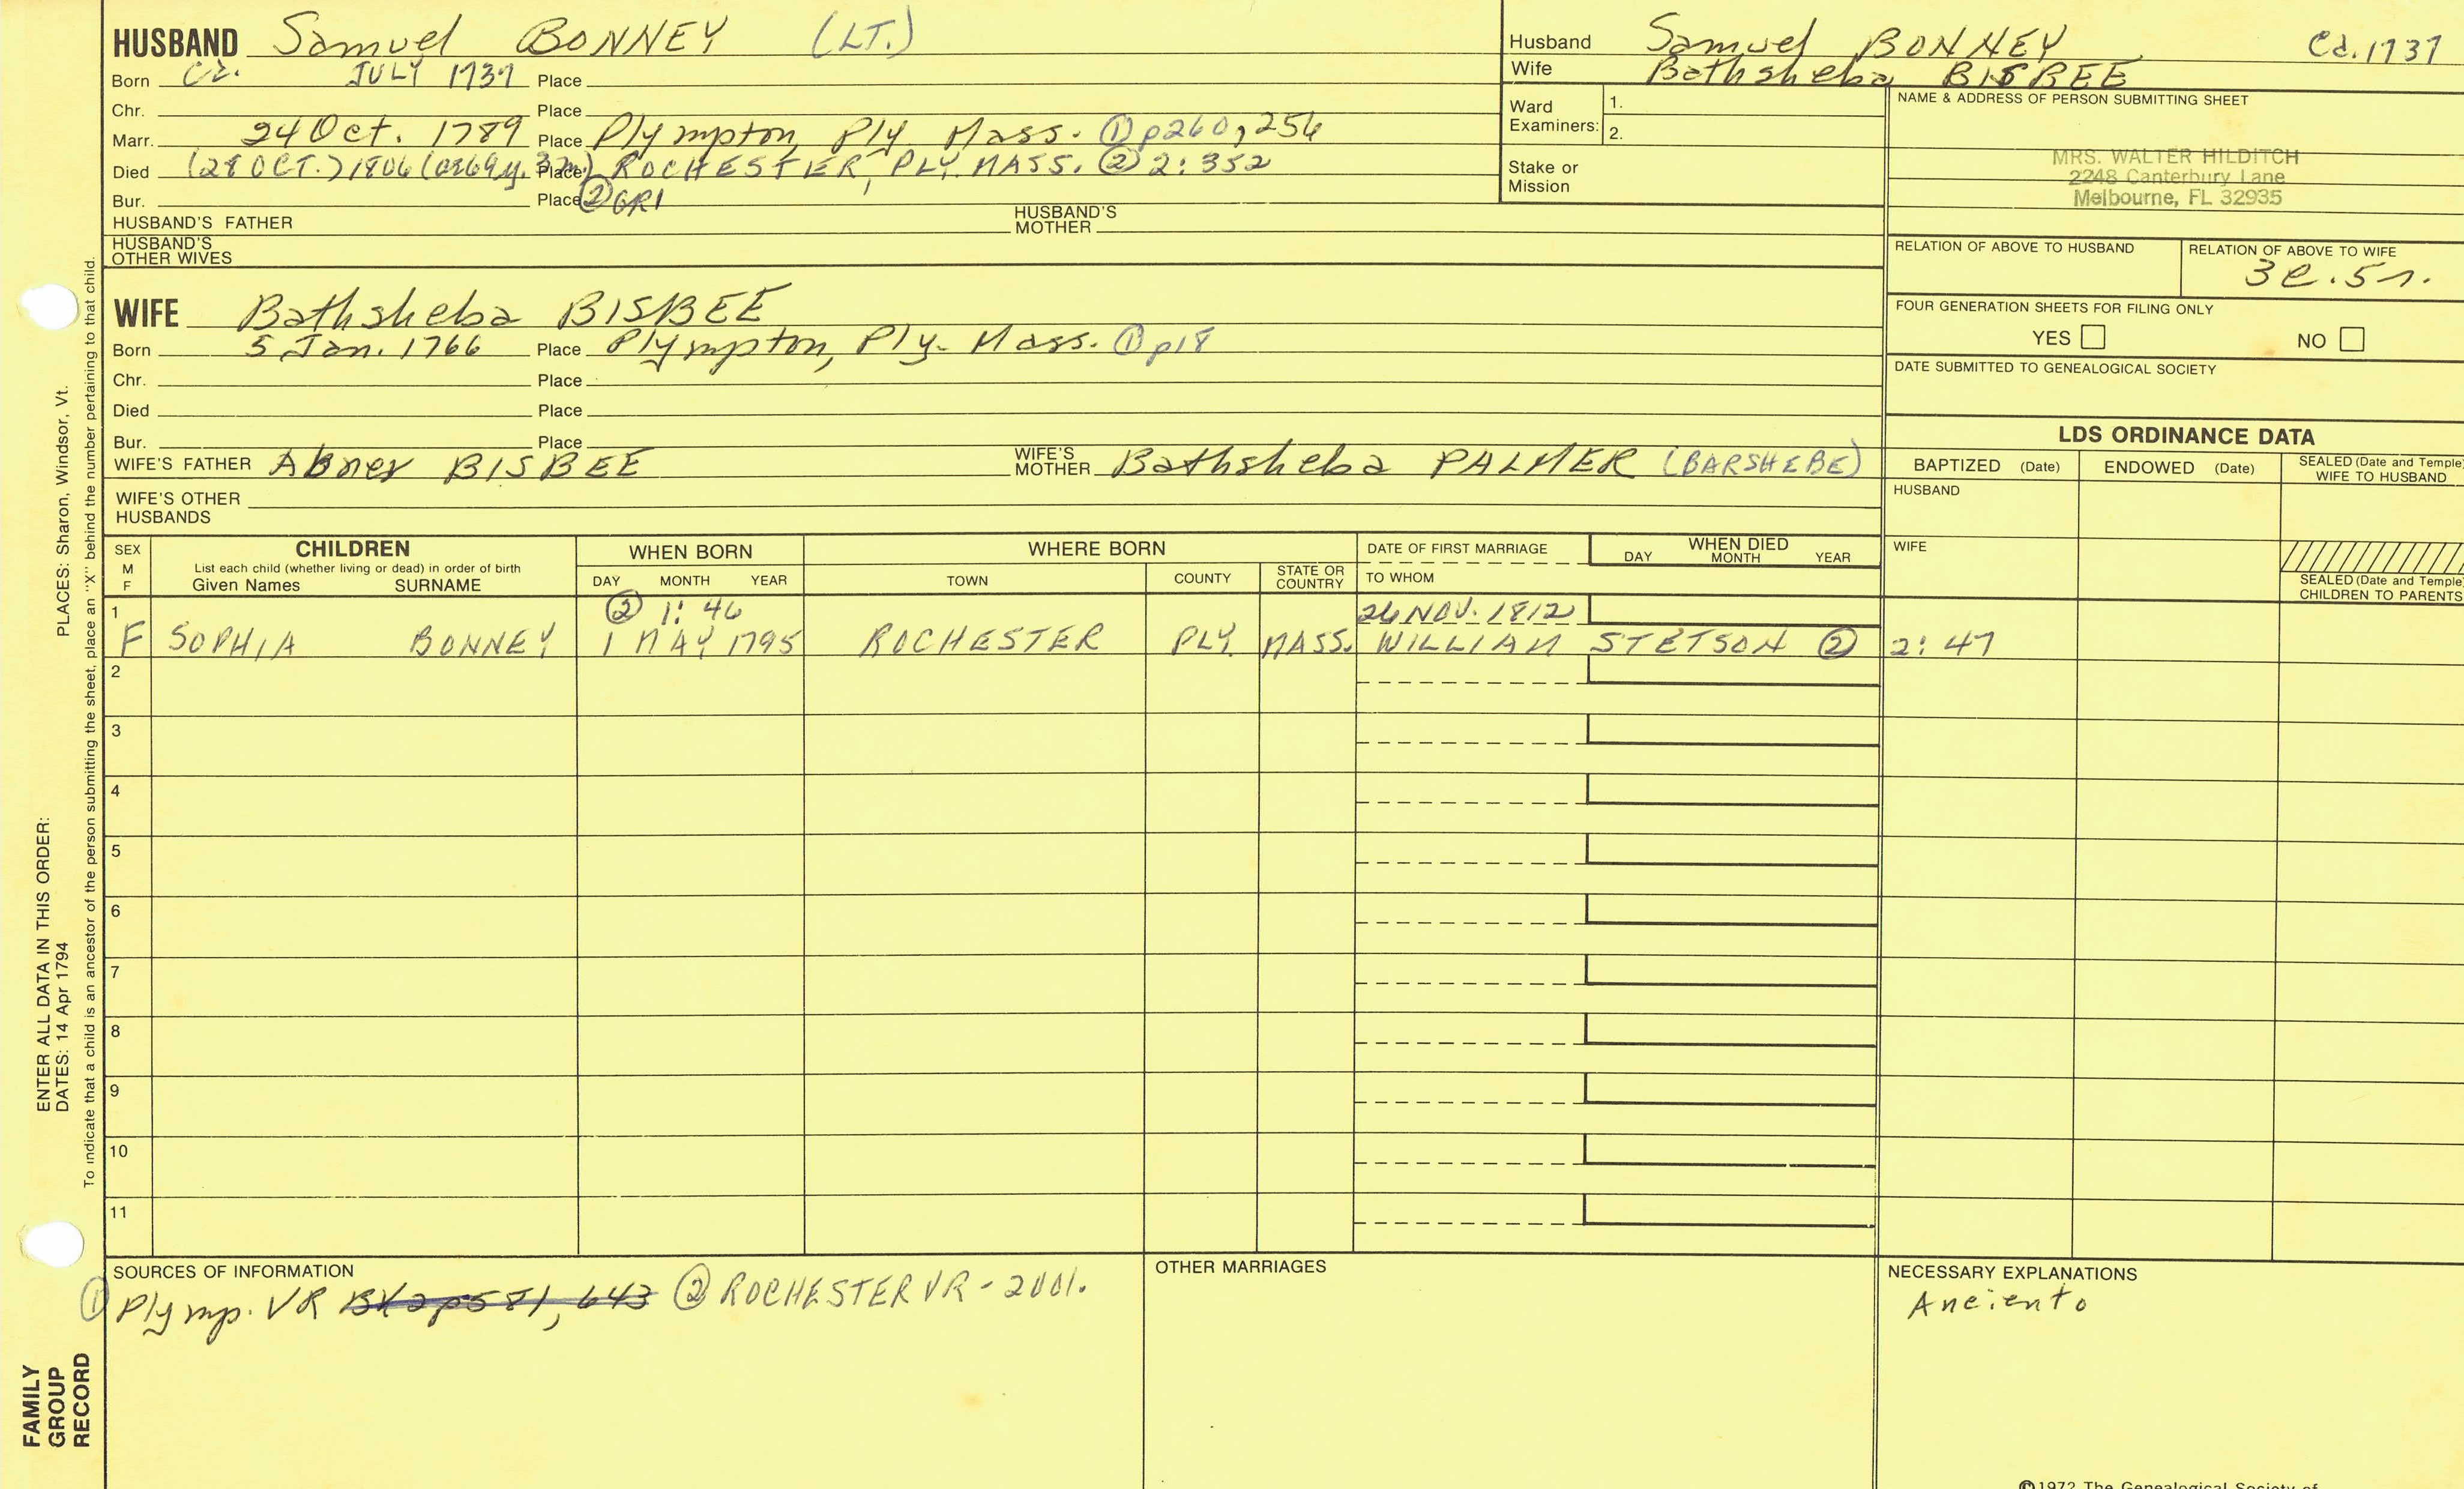 HUSBAND Samuel BONNEY (LT.)
Born Ca. JULY 1737 Place
Chr. Place
Marr. 24 Oct. 1789 Place Plympton, Ply. Mass. ① p260, 256
Died (28 OCT.) 1806 (ae 69y. 3m) Place ROCHESTER, PLY. MASS. ② 2:352
Bur. Place ② GR1
HUSBAND'S FATHER HUSBAND'S MOTHER
HUSBAND'S OTHER WIVES
Husband Samuel BONNEY Ca. 1737
Wife Bathsheba BISBEE
Ward Examiners: 1.
2.
Stake or Mission
NAME & ADDRESS OF PERSON SUBMITTING SHEET
MRS. WALTER HILDITCH
2248 Canterbury Lane
Melbourne, FL 32935
RELATION OF ABOVE TO HUSBAND RELATION OF ABOVE TO WIFE
3c.5r.
FOUR GENERATION SHEETS FOR FILING ONLY
YES NO
DATE SUBMITTED TO GENEALOGICAL SOCIETY
WIFE Bathsheba BISBEE
Born 5 Jan. 1766 Place Plympton, Ply. Mass. ① p18
Chr. Place
Died Place
Bur. Place
WIFE'S FATHER Abner BISBEE WIFE'S MOTHER Bathsheba PALMER (BARSHEBE)
WIFE'S OTHER HUSBANDS
LDS ORDINANCE DATA
BAPTIZED (Date) ENDOWED (Date) SEALED (Date and Temple) WIFE TO HUSBAND
HUSBAND
WIFE
SEALED (Date and Temple) CHILDREN TO PARENTS
SEX M F
CHILDREN
List each child (whether living or dead) in order of birth
Given Names SURNAME
WHEN BORN
DAY MONTH YEAR
WHERE BORN
TOWN COUNTY STATE OR COUNTRY
DATE OF FIRST MARRIAGE
TO WHOM
WHEN DIED
DAY MONTH YEAR
1 ② 1:46 26 NOV. 1812
F SOPHIA BONNEY 1 MAY 1795 ROCHESTER PLY. MASS. WILLIAM STETSON ② 2:47
2
3
4
5
6
7
8
9
10
11
SOURCES OF INFORMATION
① Plymp. VR Bk 2 p581, 643 ② ROCHESTER VR - 2001.
OTHER MARRIAGES
NECESSARY EXPLANATIONS
Anciento
©1972 The Genealogical Society of
PLACES: Sharon, Windsor, Vt.
ENTER ALL DATA IN THIS ORDER:
DATES: 14 Apr 1794
To indicate that a child is an ancestor of the person submitting the sheet, place an "X" behind the number pertaining to that child.
FAMILY
GROUP
RECORD